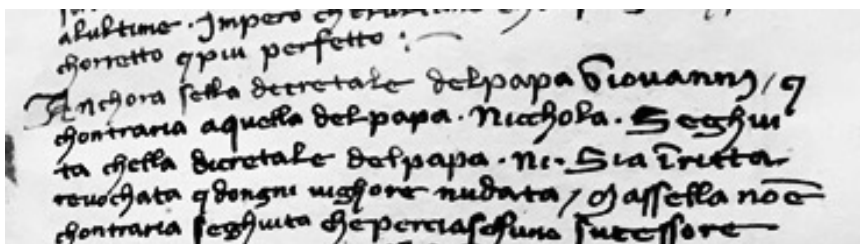 alultime . Impero
chorretto ⁊ piu perfetto :
Anchora sella decretale del papa Giovanni / ⁊
chontraria aquella del papa . Nicchola . Seghui
ta chella dicretale del papa . ni . Sia irritta
revochata ⁊ dongni vighore nudata / Massella nō e
chontraria seghuita che perciaschuno successore